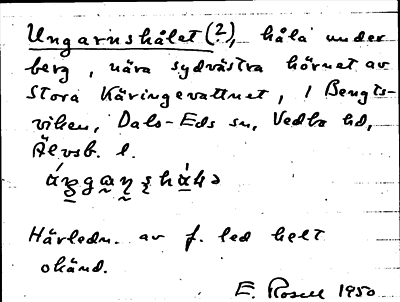 Ungarnshålet (?), håla under
berg, nära sydvästra hörnet av
Stora Käringevattnet, i Bengts-
viken, Dals-Eds sn, Vedbo hd,
Älvsb. l.
Härledn. av f. led helt
okänd.
E. Rosell 1950